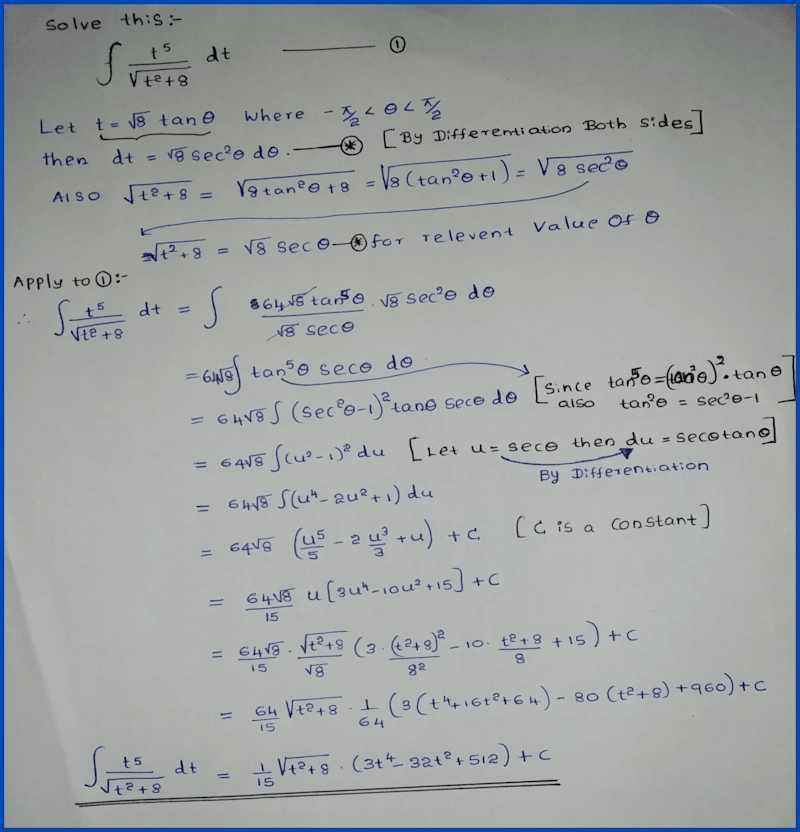 Solve this:-
∫ t⁵/√(t²+8) dt ——— ①
Let t = √8 tanθ where -π/2 < θ < π/2
then dt = √8 sec²θ dθ. —⊛ [By Differentiation Both sides]
Also √(t²+8) = √(8tan²θ+8) = √(8(tan²θ+1)) = √(8 sec²θ)
√(t²+8) = √8 secθ —⊛ for relevent value of θ
Apply to ①:-
∴ ∫ t⁵/√(t²+8) dt = ∫ (64√8 tan⁵θ · √8 sec²θ dθ)/(√8 secθ)
= 64√8 ∫ tan⁵θ secθ dθ
= 64√8 ∫ (sec²θ-1)² tanθ secθ dθ [since tan⁵θ = (tan²θ)² · tanθ
also tan²θ = sec²θ-1]
= 64√8 ∫ (u²-1)² du [Let u = secθ then du = secθtanθ]
By Differentiation
= 64√8 ∫ (u⁴-2u²+1) du
= 64√8 (u⁵/5 - 2 u³/3 + u) + C [C is a constant]
= 64√8/15 u [3u⁴-10u²+15] + C
= 64√8/15 · √(t²+8)/√8 (3 · (t²+8)²/8² - 10 · (t²+8)/8 + 15) + C
= 64/15 √(t²+8) · 1/64 (3(t⁴+16t²+64) - 80(t²+8) + 960) + C
∫ t⁵/√(t²+8) dt = 1/15 √(t²+8) · (3t⁴-32t²+512) + C